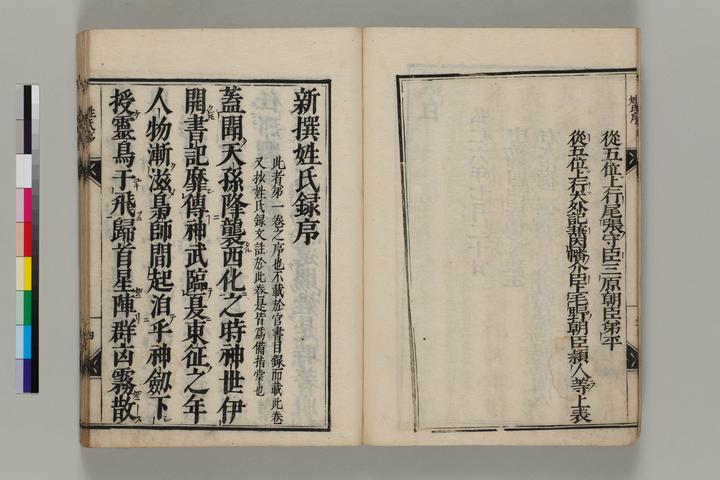 從五位上行尾張守臣三原朝臣弟平
從五位上行大外記兼因幡介臣上毛野朝臣頴人等上表
新撰姓氏録序
此者第一卷之序也不載於官書目録而載此卷
又抜姓氏録文註於此卷是皆爲備指掌也
蓋聞天孫降襲西化之時神世伊
開書記靡傳神武臨夏東征之年
人物漸滋梟師間起洎乎神劔下
授靈烏于飛歸首星陣群凶霧散
姓氏序
四